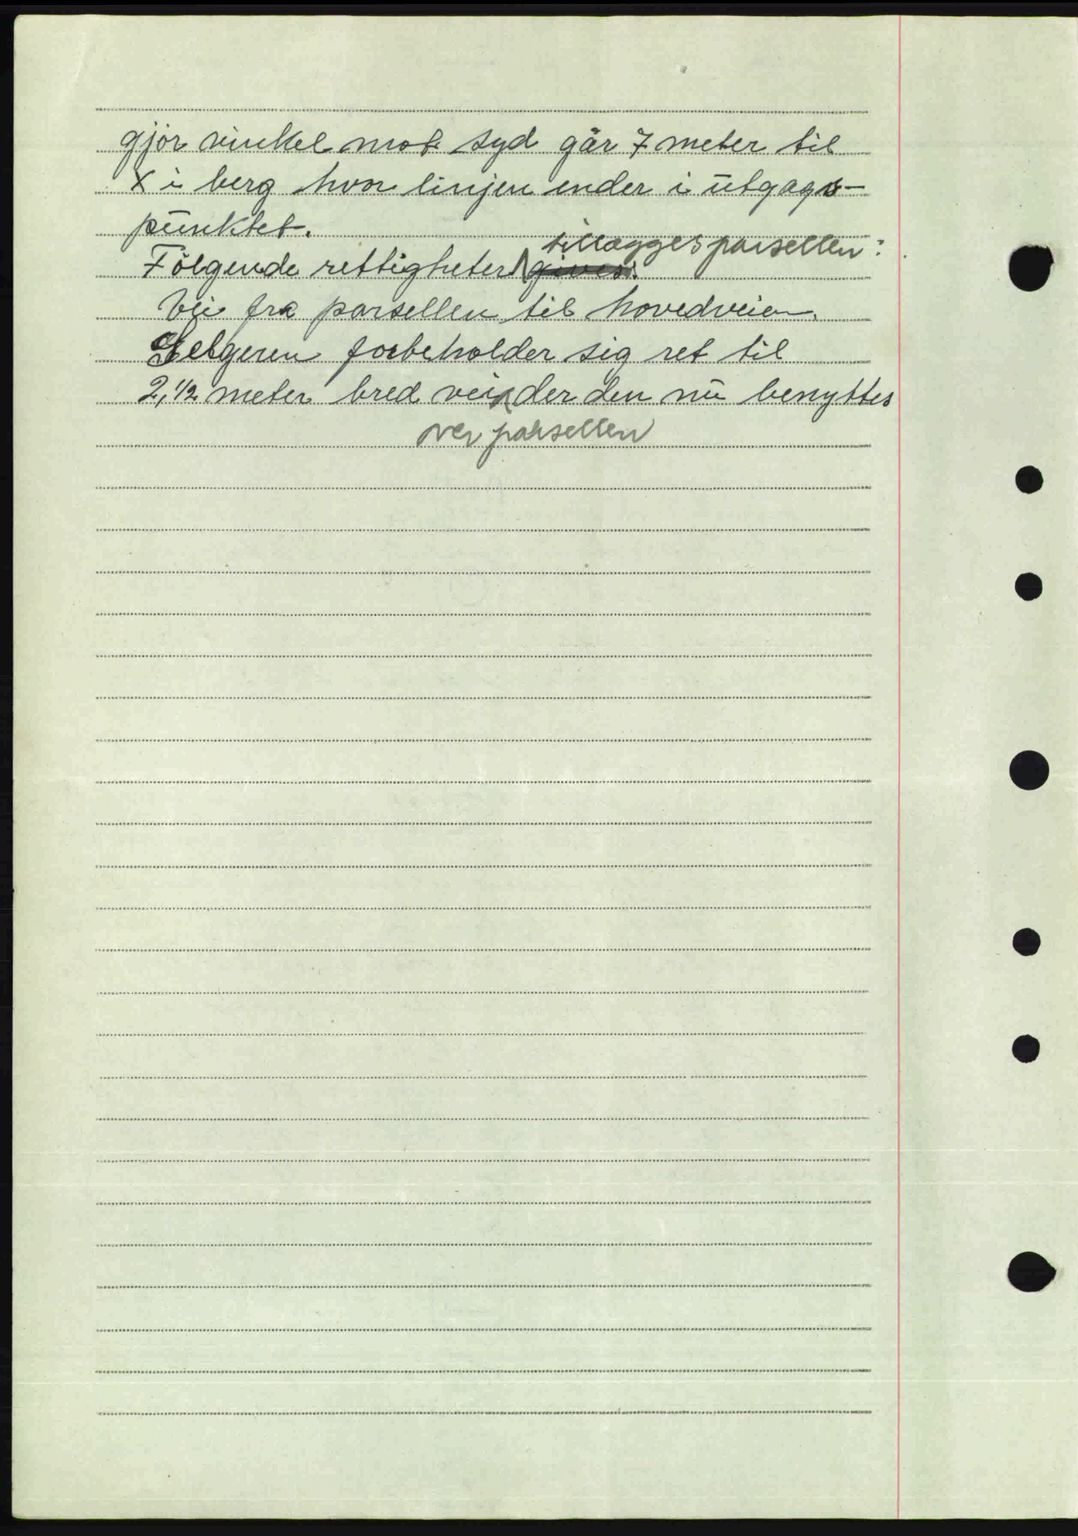 gjör vinkel mot syd går 7 meter til
X i berg hvor linjen ender i utgags-
punktet.
tillægges parsellen:
Følgende rettigheter gives:
Vei fra parsellen til hovedveien.
Selgeren forbeholder sig ret til
2,1/2 meter bred vei der den nu benyttes
over parsellen